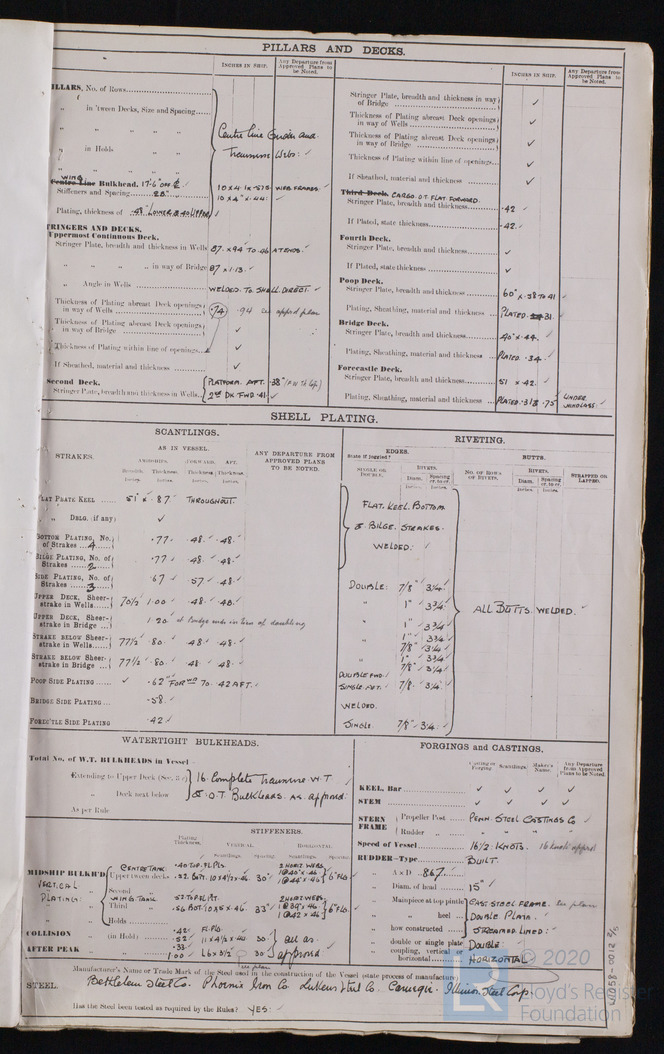 PILLARS AND DECKS.
INCHES IN SHIP.
Any Departure from Approved Plans to be Noted.
PILLARS, No. of Rows
" in 'tween Decks, Size and Spacing
Centre line Girder and
" in Holds
Transverse Webs: ✓
WING
Centre Line Bulkhead. 17'-6" OFF ₵
10 x 4.1 x .575 WEB FRAMES
Stiffeners and Spacing 28"
10 x 4" x .44
Plating, thickness of .48 LOWER & .40 UPPER ✓
STRINGERS AND DECKS.
Uppermost Continuous Deck.
Stringer Plate, breadth and thickness in Wells 87 x .94 TO .06 AT ENDS. ✓
" " " in way of Bridge 87 x 1.13. ✓
" Angle in Wells WELDED TO SHELL DIRECT. ✓
Thickness of Plating abreast Deck openings in way of Wells .74 .94 see appd plan
Thickness of Plating abreast Deck openings in way of Bridge ✓
Thickness of Plating within line of openings ✓
If Sheathed, material and thickness ✓
Second Deck. PLATFORM AFT. .38"
Stringer Plate, breadth and thickness in Wells 2ND DK FWD .41 ✓
INCHES IN SHIP.
Any Departure from Approved Plans to be Noted.
Stringer Plate, breadth and thickness in way of Bridge ✓
Thickness of Plating abreast Deck openings in way of Wells ✓
Thickness of Plating abreast Deck openings in way of Bridge ✓
Thickness of Plating within line of openings ✓
If Sheathed, material and thickness ✓
Third Deck. CARGO O.T. FLAT FORWARD.
Stringer Plate, breadth and thickness .42 ✓
If Plated, state thickness .42 ✓
Fourth Deck.
Stringer Plate, breadth and thickness ✓
If Plated, state thickness ✓
Poop Deck.
Stringer Plate, breadth and thickness 60" x .38 TO 41 ✓
Plating, Sheathing, material and thickness PLATED .31 ✓
Bridge Deck.
Stringer Plate, breadth and thickness 40" x .44. ✓
Plating, Sheathing, material and thickness PLATED .34 ✓
Forecastle Deck.
Stringer Plate, breadth and thickness 51 x .42. ✓
Plating, Sheathing, material and thickness PLATED .318 .75 UNDER WINDLASS ✓
SHELL PLATING.
SCANTLINGS.
STRAKES.
AS IN VESSEL.
AMIDSHIPS. FORWARD. AFT.
Breadth. Thickness. Thickness. Thickness.
Inches. Inches. Inches. Inches.
ANY DEPARTURE FROM APPROVED PLANS TO BE NOTED.
FLAT PLATE KEEL 51 x .87. THROUGHOUT.
" DBLG. (if any) ✓
BOTTOM PLATING, No. of Strakes 4 .77. .48. .48.
BILGE PLATING, No. of Strakes 2 .77 .48. .48.
SIDE PLATING, No. of Strakes 3 .67 .57 .48.
UPPER DECK, Sheerstrake in Wells 70½ 1.00 .48. .48.
UPPER DECK, Sheerstrake in Bridge 1.20 at bridge ends in lieu of doubling
STRAKE BELOW Sheerstrake in Wells 77½ .80. .48. .48.
STRAKE BELOW Sheerstrake in Bridge 77½ .80. .48 .48.
POOP SIDE PLATING ✓ .62 FORWD TO .42 AFT. ✓
BRIDGE SIDE PLATING .58. ✓
FOREC'TLE SIDE PLATING .42 ✓
RIVETING.
EDGES.
State if Joggled?
SINGLE OR DOUBLE.
RIVETS.
Diam. Spacing cr. to cr.
Inches. Inches.
BUTTS.
NO. OF ROWS OF RIVETS.
RIVETS.
Diam. Spacing cr. to cr.
Inches. Inches.
STRAPPED OR LAPPED.
FLAT. KEEL. BOTTOM
& BILGE. STRAKES.
WELDED: ✓
DOUBLE: 7/8" 3¼"
" 1" 3¾"
" 1" 3¾"
" 1" 3¾
7/8" 3¼"
" 1" 3¾
7/8" 3¼"
DOUBLE FWD.
SINGLE. AFT. 7/8" 3¼"
WELDED.
SINGLE. 7/8" 3¼
ALL BUTTS WELDED. ✓
WATERTIGHT BULKHEADS.
Total No. of W.T. BULKHEADS in Vessel
Extending to Upper Deck
" Deck next below
As per Rule
16 Complete Transverse W.T.
& O.T. Bulkheads as approved:
STIFFENERS.
Plating Thickness.
VERTICAL. HORIZONTAL.
Scantlings. Spacing. Scantlings. Spacing.
MIDSHIP BULKH'D CENTRE TANK .40 TOP. FL. PLS. 3 HORIZ. WEBS.
Upper tween decks .52. BOTT. 10 x 4½ x .46 30" 1@40" x .46 1@44" x .46 6" FLG.
VERTICAL PLATING: Second WING TANK .52 TOP. FL. PLS. 3 HORIZ. WEBS
" Third " .56 BOTT. 10 x 5 x .46 33" 1@39" x .46 1@42 x .46 6" FLG.
" Holds
COLLISION " (in Hold) .42 FL. PL. .52 11 x 4½ x .44 30. all as
AFTER PEAK " " .33 1.00 L6 x 3½ 30 approved
see plan
FORGINGS and CASTINGS.
Casting or Forging Scantlings. Maker's Name. Any Departure from Approved Plans to be Noted.
KEEL, Bar ✓ ✓ ✓ ✓
STEM ✓ ✓ ✓ ✓
STERN FRAME Propeller Post PENN. STEEL CASTINGS Co ✓
Rudder " " " " "
Speed of Vessel 16½ KNOTS. 16 knots approved
RUDDER—Type BUILT.
" A x D 867. ✓
" Diam. of head 15" ✓
" Mainpiece at top pintle CAST STEEL FRAME. see plan
" " heel DOUBLE PLATE.
" how constructed STREAMLINED: ✓
" double or single plate DOUBLE
" coupling, vertical or horizontal HORIZONTAL
Manufacturer's Name or Trade Mark of the Steel used in the construction of the Vessel (state process of manufacture)
STEEL. Bethlehem Steel Co. Phoenix Iron Co. Lukens Steel Co. Carnegie. Illinois Steel Corp.
Has the Steel been tested as required by the Rules? YES. ✓
W1058-0012 2/2
© 2020
LR
Lloyd's Register
Foundation